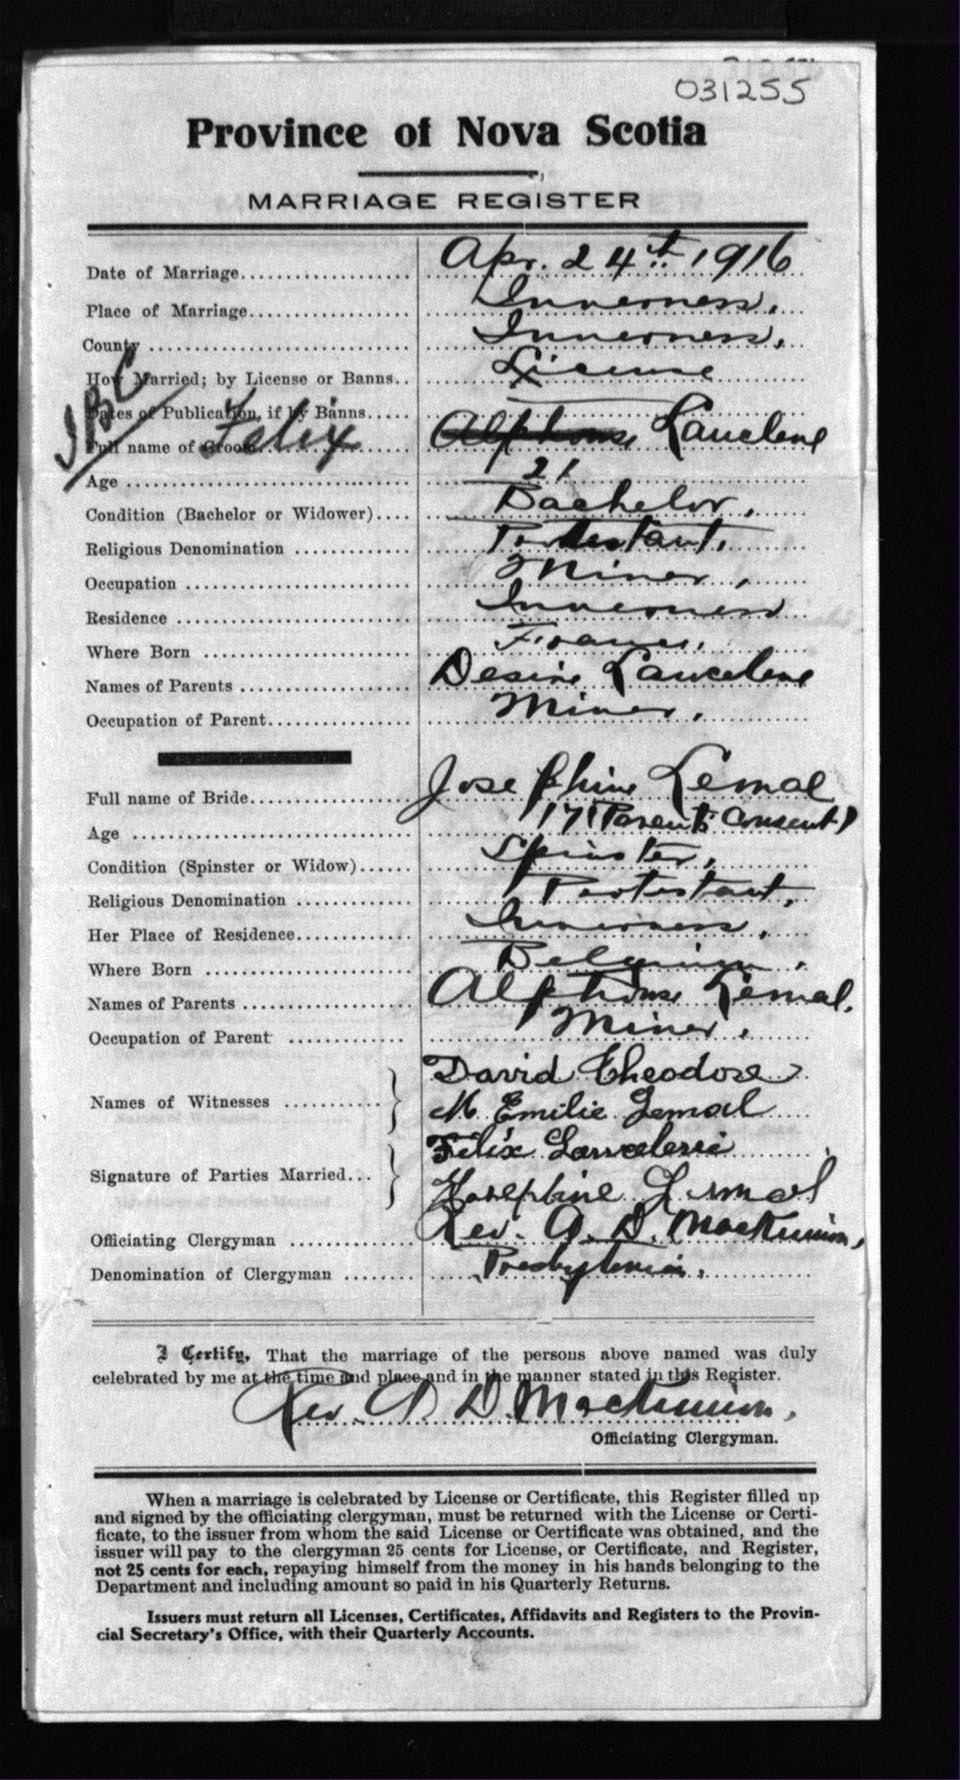 031255
Province of Nova Scotia
MARRIAGE REGISTER
Date of Marriage.................... Apr. 24th 1916
Place of Marriage................... Inverness,
County .............................. Inverness,
How Married; by License or Banns.. License
Dates of Publication, if by Banns.....
JBC
Full name of Groom.................. Felix Alphonse Lancelene
Age ................................. 21
Condition (Bachelor or Widower).... Bachelor,
Religious Denomination ............. Protestant,
Occupation .......................... Miner,
Residence ........................... Inverness
Where Born ......................... France,
Names of Parents .................... Desire Lancelene
Occupation of Parent................. Miner,
Full name of Bride................... Josephine Lemal
Age ................................. 17 (Parents Consent)
Condition (Spinster or Widow)...... Spinster,
Religious Denomination ............. Protestant,
Her Place of Residence.............. Inverness,
Where Born ......................... Belgium,
Names of Parents .................... Alphonse Lemal.
Occupation of Parent ............. Miner,
Names of Witnesses ........... } David Theodore
M. Emilie Lemal
Signature of Parties Married... } Félix
Josephine Lemal
Officiating Clergyman .............. Rev. A. D. MacKinnon,
Denomination of Clergyman ........ Presbyterian,
I Certify, That the marriage of the persons above named was duly
celebrated by me at the time and place and in the manner stated in this Register.
Rev. A. D. MacKinnon,
Officiating Clergyman.
When a marriage is celebrated by License or Certificate, this Register filled up
and signed by the officiating clergyman, must be returned with the License or Certi-
ficate, to the issuer from whom the said License or Certificate was obtained, and the
issuer will pay to the clergyman 25 cents for License, or Certificate, and Register,
not 25 cents for each, repaying himself from the money in his hands belonging to the
Department and including amount so paid in his Quarterly Returns.
Issuers must return all Licenses, Certificates, Affidavits and Registers to the Provin-
cial Secretary's Office, with their Quarterly Accounts.